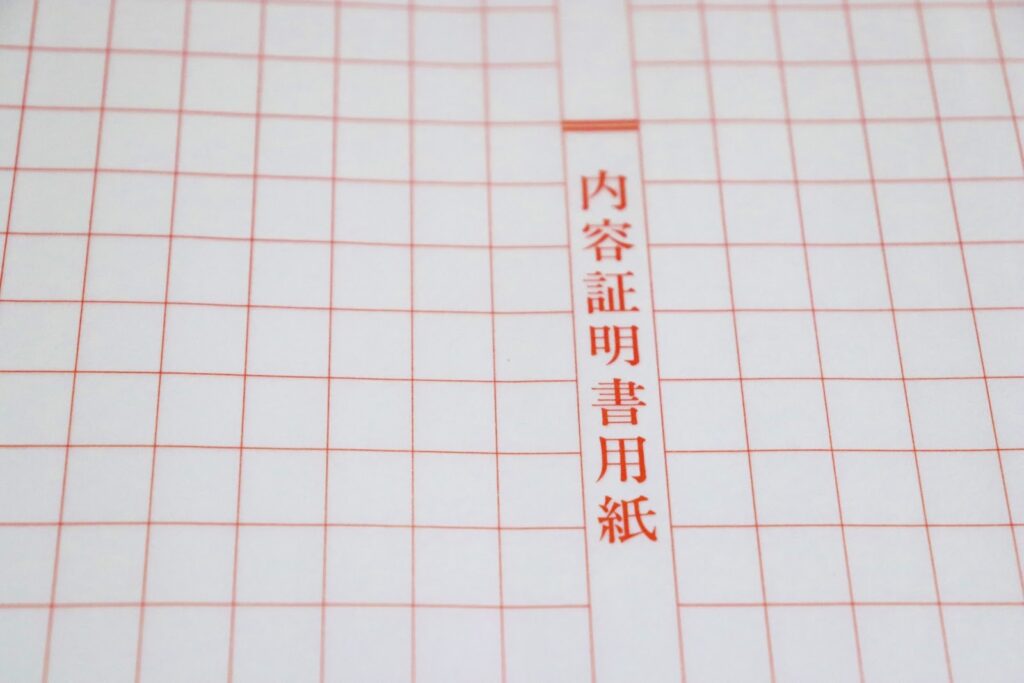 内容証明書用紙